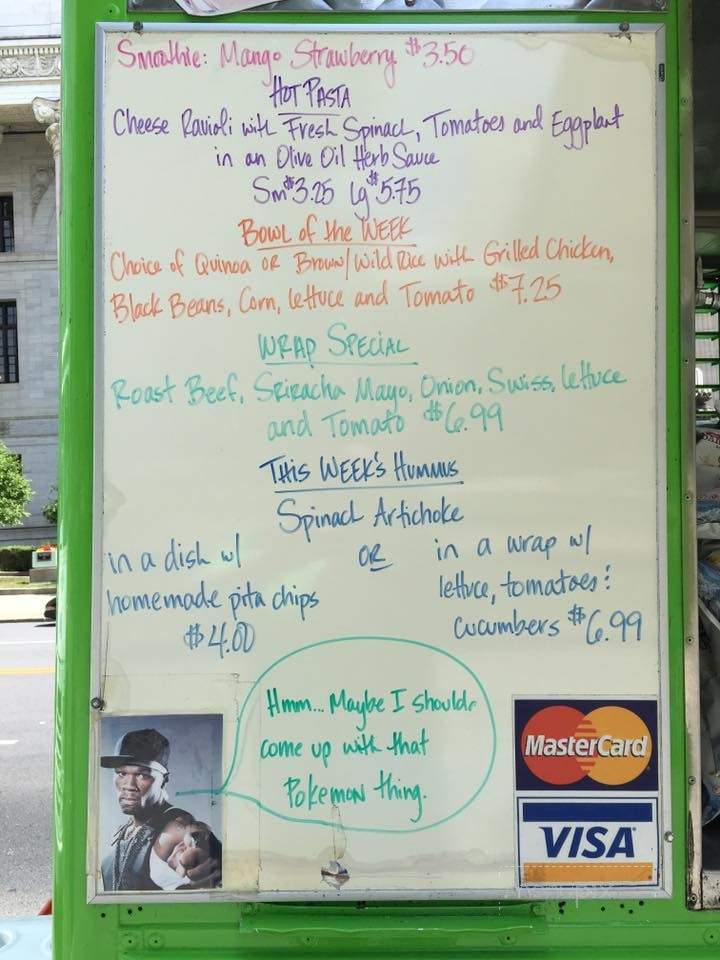 Smoothie: Mango Strawberry $3.50
HOT PASTA
Cheese Ravioli with Fresh Spinach, Tomatoes and Eggplant
in an Olive Oil Herb Sauce
Sm $3.25 Lg $5.75
BOWL of the WEEK
Choice of Quinoa or Brown/Wild Rice with Grilled Chicken,
Black Beans, Corn, lettuce and Tomato $7.25
WRAP SPECIAL
Roast Beef, Sriracha Mayo, Onion, Swiss, lettuce
and Tomato $6.99
THIS WEEK'S HUMMUS
Spinach Artichoke
in a dish w/
homemade pita chips
$4.00
OR
in a wrap w/
lettuce, tomatoes &
cucumbers $6.99
Hmm... Maybe I should
come up with that
Pokemon thing.
MasterCard
VISA